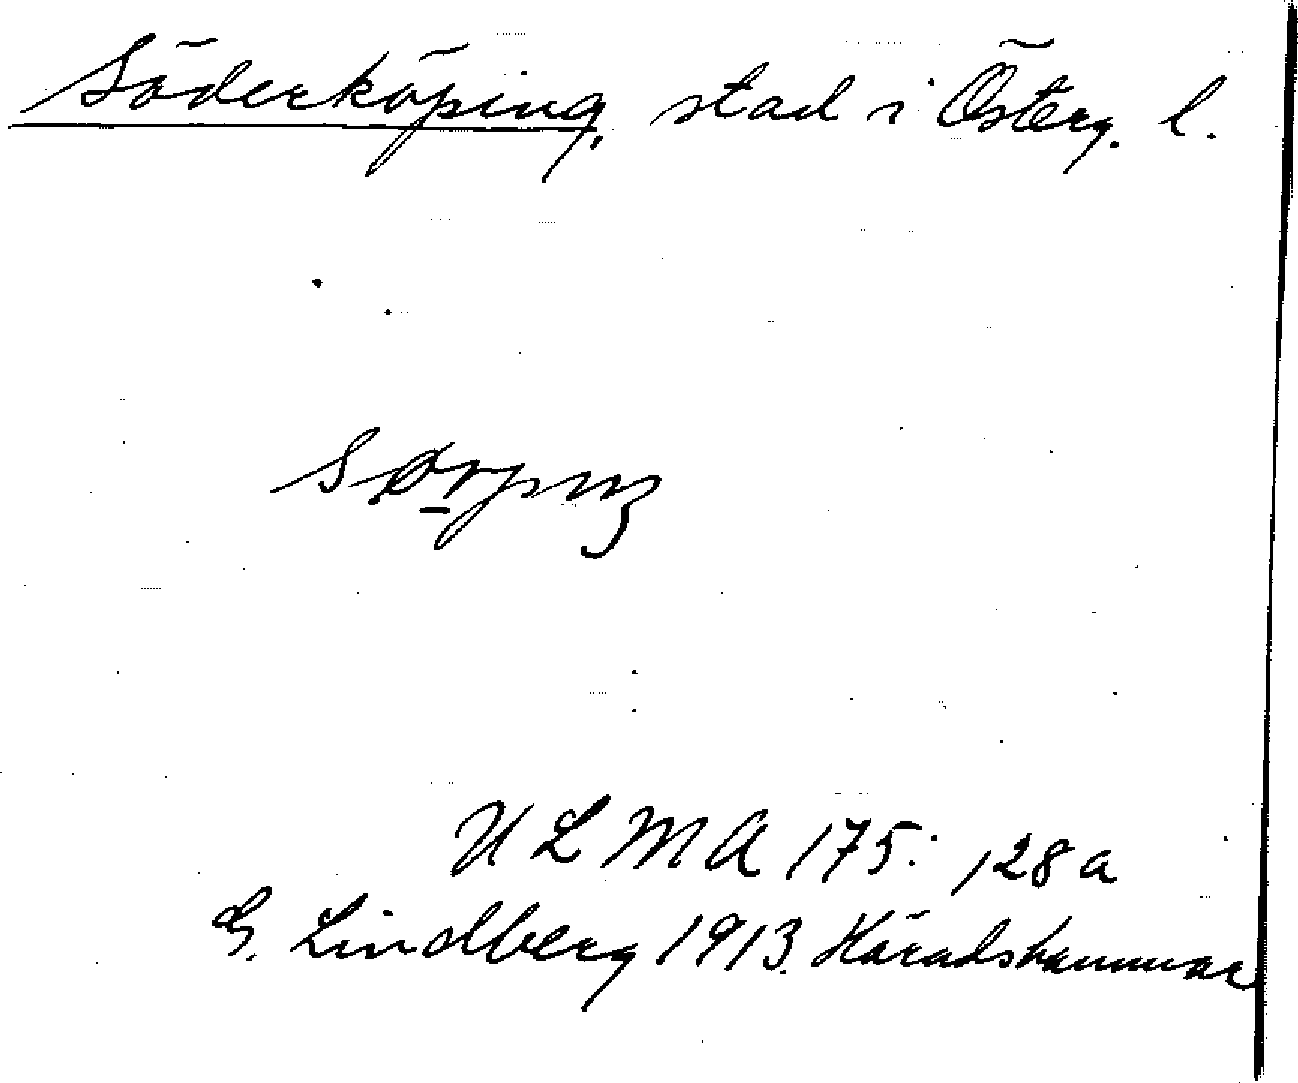 Söderköping, stad i Österg. l.
ULMA 175:128a
G. Lindberg 1913. Häradshammar